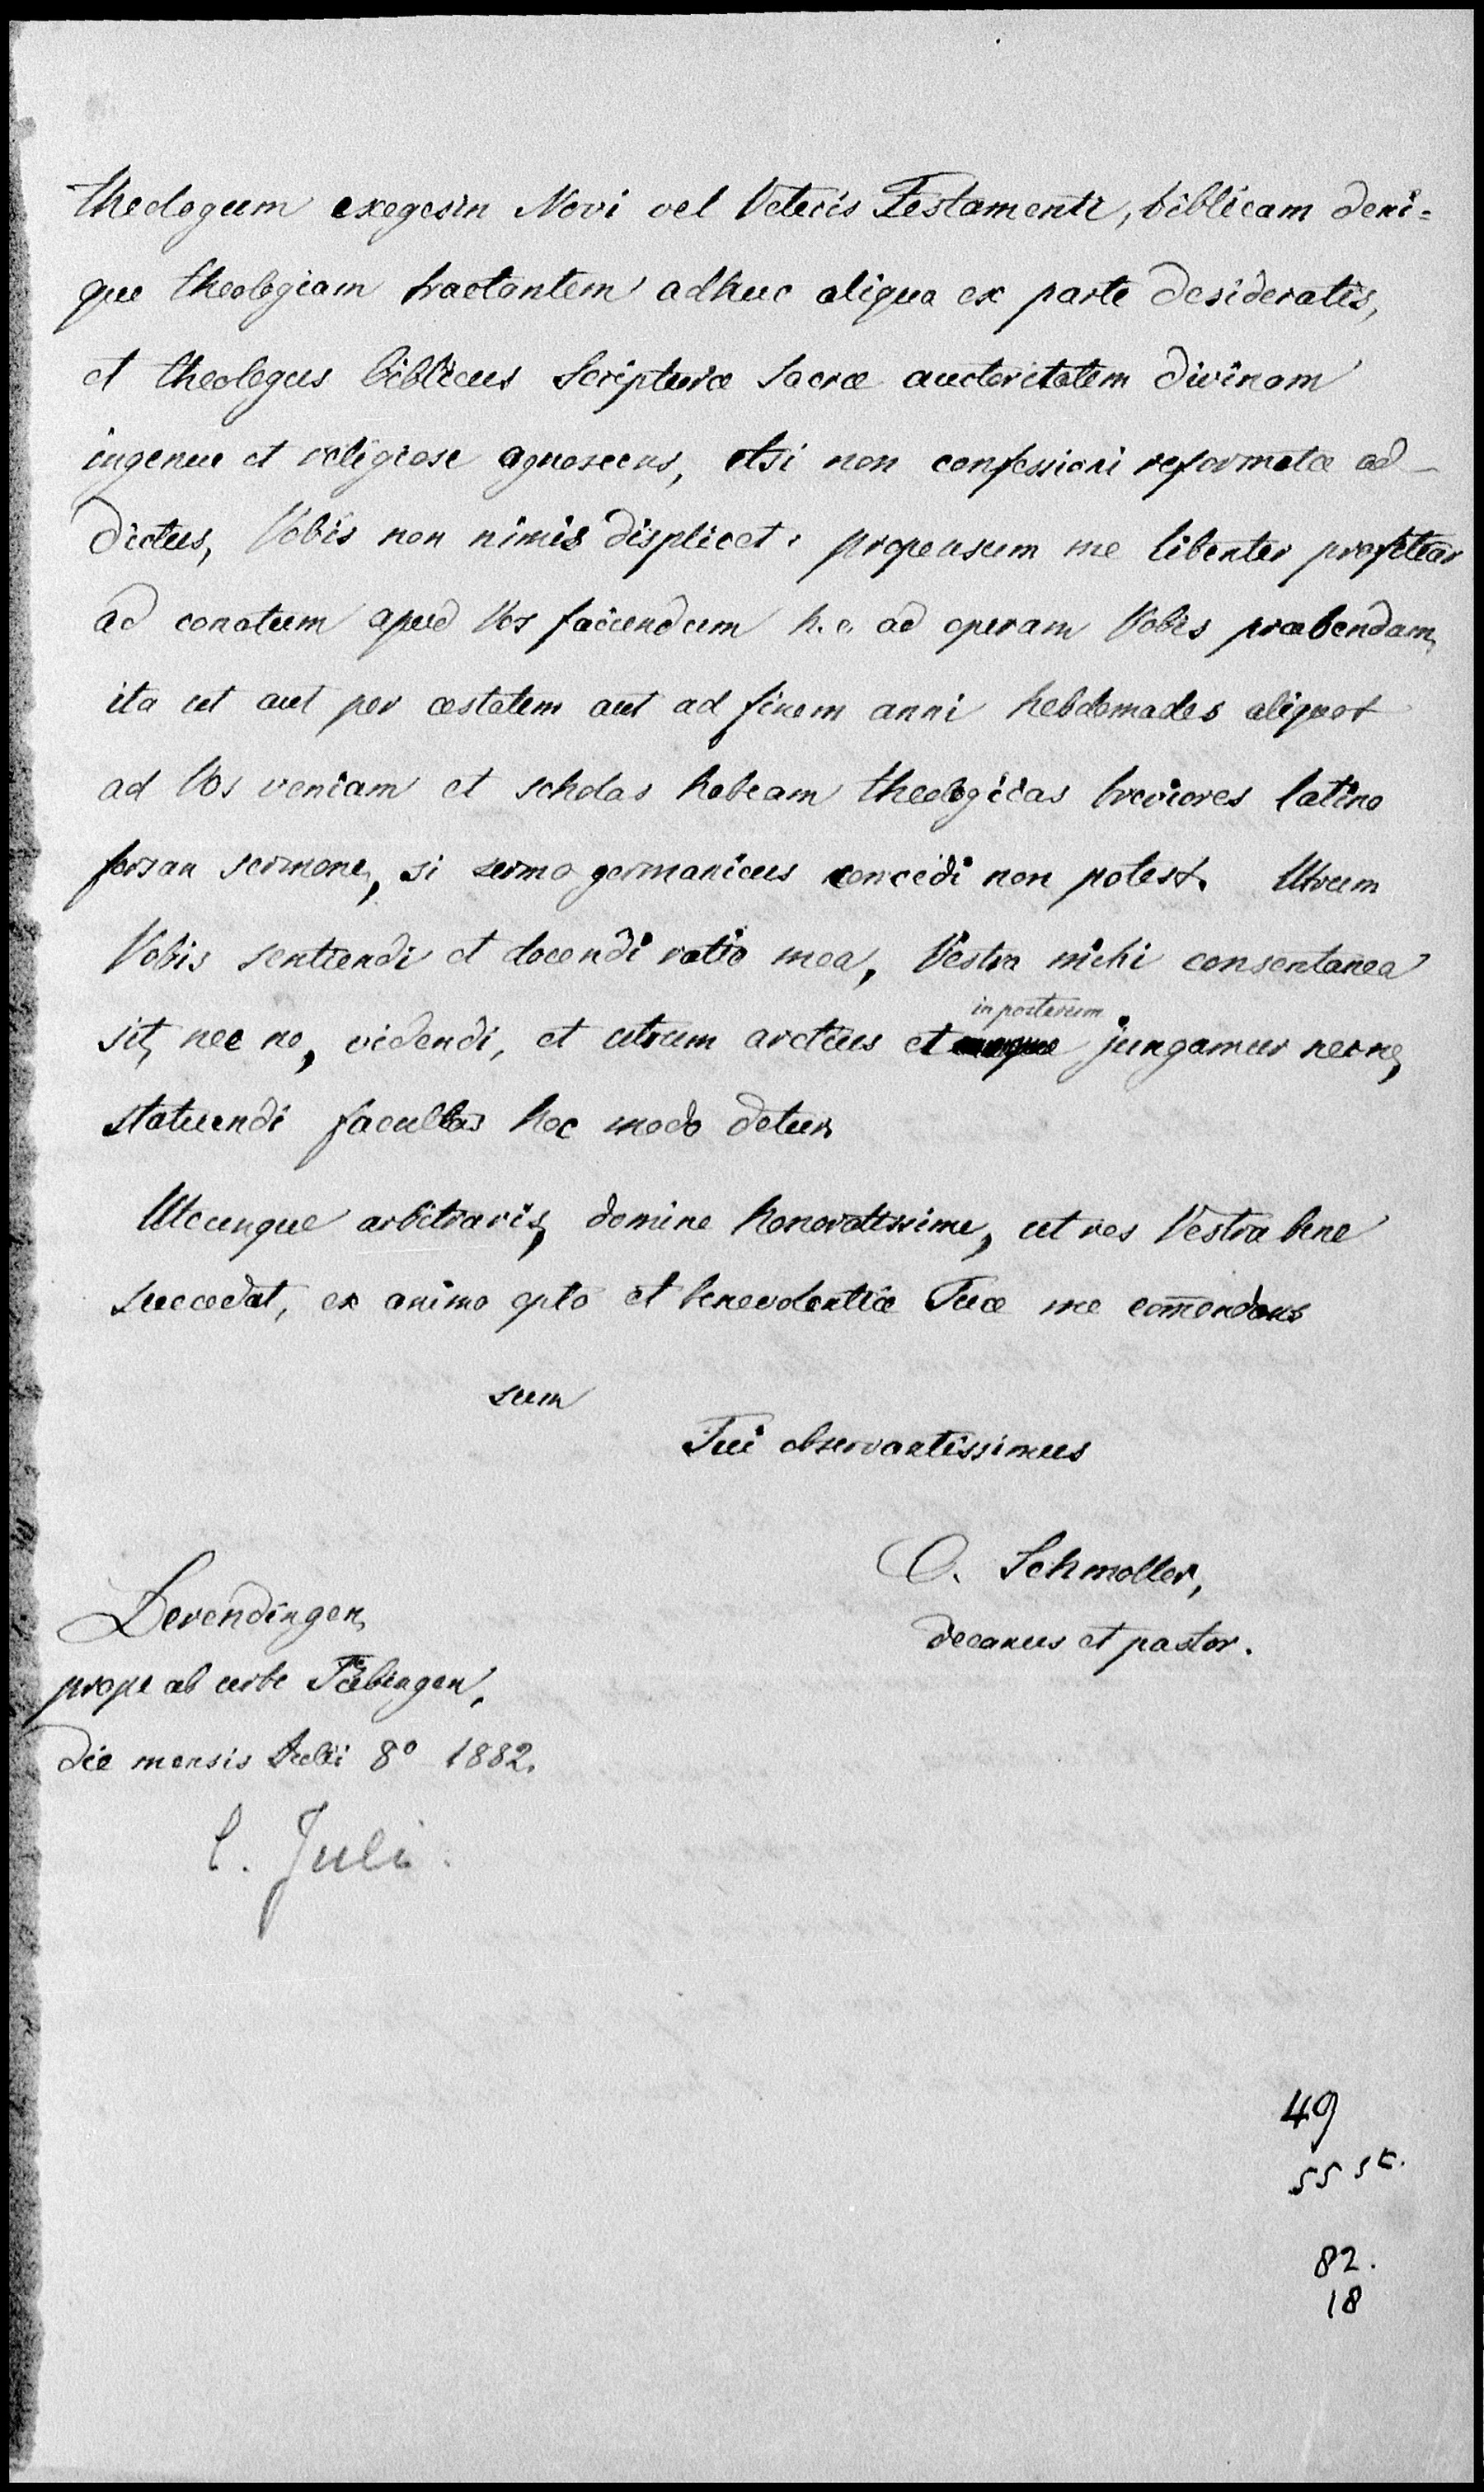 theologum exegesin Novi vel Veteris Testamenti, biblicam deni=
que theologiam tractantem adhuc aliqua ex parte desideratis,
et theologus biblicus Scripturæ Sacræ auctoritatem divinam
ingenue et religiose agnoscens, etsi non confessioni reformatæ ad-
dictus, Vobis non nimis displicet: propensum me libenter profitear
ad conatum apud Vos faciendum h. e. ad operam Vobis præbendam,
ita ut aut per æstatem aut ad finem anni hebdomades aliquot
ad Vos veniam et scholas habeam theologicas breviores latino
forsan sermone, si sermo germanicus concedi non potest. Utrum
Vobis sentiendi et docendi ratio mea, Vestra mihi consentanea
sit, nec ne, videndi, et utrum arctius et in posterum jungamur necne,
statuendi facultas hoc modo detur.
Utcunque arbitraris, domine honoratissime, ut res Vestra bene
succedat, ex animo opto et benevolentiæ Tuæ me com̄endans
sum
Tui observantissimus
O. Schmoller,
decanus et pastor.
Derendingen,
prope ab urbe Tübingen,
die mensis Julii 8º 1882.
l. Juli.
49
55 st.
82.
18